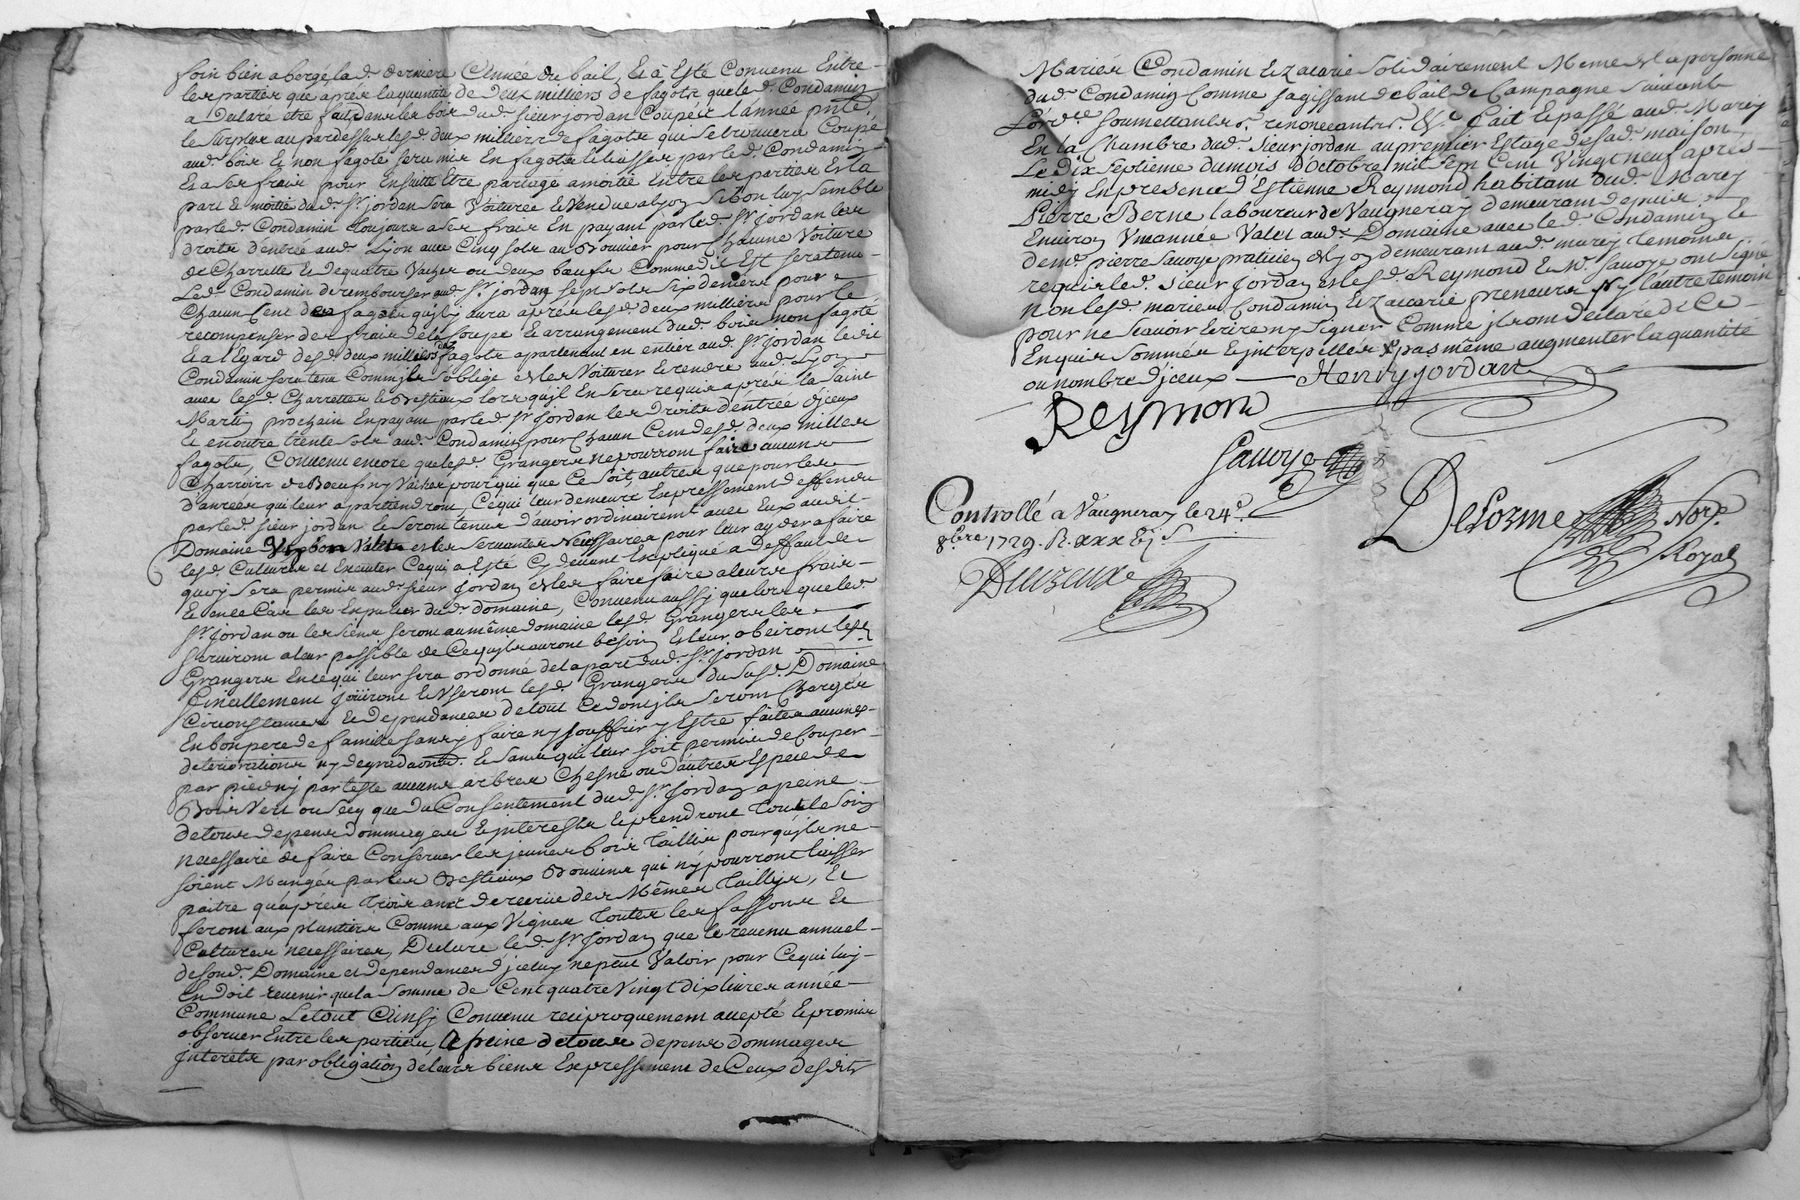 soin bien abergé la d. derniere Année du bail, Et à Esté Convenu Entre
les parties que apres la quantité de deux milliers de fagots que led. Condamin
a declaré être faits dans les bois dud. sieur jordan Coupés l'année pnte
le surplus au pardessus lesd. deux milliers de fagots qui se trouvera Coupé
aud. bois Et non fagoté sera mis En fagots Et liasses par led. Condamin
Et a ses frais pour Ensuitte Etre partagé a moitié Entre les parties Et la
part Et moitié dud. Sr. jordan sera Voiturée Et Vendue a lyon si bon luy semble
par led. Condamin toujours a ses frais En payant par led. Sr. jordan les
droits d'entrée aud. Lyon avec Cinq sols au Bouvier pour Chacune Voiture
de Charrette Et de quatre Vaches ou deux boeufs Comme dit Est sera tenu
Led. Condamin de rembourser aud. Sr. jordan sept sols six deniers pour
Chacun Cent de fagots qu'il y aura apres lesd. deux milliers pour le
recompenser des frais de la Coupe Et arrangement dud. bois non fagoté
Et a l'Egard desd. deux milliers de fagots apartenant en entier aud. Sr. Jordan led.
Condamin sera tenu Comme il s'oblige de les Voiturer Et rendre aud. Lyon
avec lesd. Charrettes Et Bestiaux lors qu'il En sera requis aprés la Saint
Martin prochain En payant par led. Sr. Jordan les Droits d'entrée d'jceux
Et en outre trente sols aud. Condamin pour Chacun Cent desd. deux milles
fagots, Convenu encore que lesd. Grangers ne pourront faire aucuns
Charrois de Boeufs ny Vaches pour qui que Ce soit, autres que pour les
danrées qui leur apartiendront, Ce qui leur demeure Expressement deffendu
par led. sieur jordan Et seront tenus d'avoir ordinairement avec Eux aud.
Domaine Un bon Valet et les servantes Necessaires pour leur ayder a faire
lesd. Cultures et Executer Ce qui a Esté Cy devant Expliqué a Deffaut de
quoy sera permis aud. sieur Jordan de les faire faire a leurs frais
Et en ce Cas les Expulser dud. domaine, Convenu aussy que lors que led.
Sr. Jordan ou les siens seront au même domaine lesd. Grangers les
serviront a leur possible de Ce qu'ils auront besoin Et leur obeiront lesd.
Grangers En ce qui leur sera ordonné de la part dud. Sr. Jordan
finallement Joüiront Et Useront lesd. Grangers du susd. Domaine
Circonstances Et Dependances de tout Ce dont ils seront Chargés
En bon pere de famille sans y faire ny souffrir y Estre faites aucunes
deteriorations ny degradaons. Et sans qu'il leur soit permis de Couper
par pied ny par teste aucuns arbres Chesne ou d'autres Especes de
Bois Vert ou secq que du Consentement dud. Sr. Jordan a peine
de tous depens dommages Et interests Et prendront tout le soin
necessaire de faire Conserver les jeunes bois taillis pour qu'ils ne
soient Mangés par les Bestiaux Bovins qui n'y pourront laisser
paitre qu'après trois ans de recrue des Mêmes taillis, Et
feront aux plantiers Comme aux Vignes toutes les fassons Et
Cultures necessaires, Declare led. Sr. Jordan que le revenu annuel
de sond. Domaine et dependances d'jceluy ne peut Valoir pour Ce qui luy
En doit revenir que la somme de Cent quatre Vingt dix livres année
Commune Le tout Ainsy Convenu reciproquement accepté Et promis
observer Entre les parties, A peine de tous depens dommages
Interets par obligation de leurs biens Expressement de Ceux desdits
Mariés Condamin Et Zacarie solidairement Meme de la personne
dud. Condamin Comme s'agissant de bail de Campagne suivant
L'ord.ce soumettants. renonceants. &c. fait Et passé aud. Marcy
En la Chambre dud. sieur jordan au premier Estage de sad. maison
Le Dix septieme du mois d'octobre mil sept Cent Vingt neuf apres
midy En presence d'Estienne Reymond habitant dud. Marcy
Pierre Berne laboureur de Vaugneray demeurant depuis
Environ Une année Valet aud. Domaine avec led. Condamin Et
de me. pierre Savoye praticien de lyon demeurant aud. marcy temoins
requis led. sieur Jordan Et lesd. Reymond Et Me. Savoye ont signé
Non lesd. mariés Condamin Et Zaccarie preneurs ny l'autre temoin
pour ne sçavoir Ecrire ny signer Comme ils ont declaré de Ce
Enquis sommés Et interpellés & pas même augmenter la quantité
ou nombre d'jceux Henry jordan
Reymond
Savoye
Controllé a Vaugneray le 24e.
8bre. 1729. R. xxx
Delorme Nore.
Royal